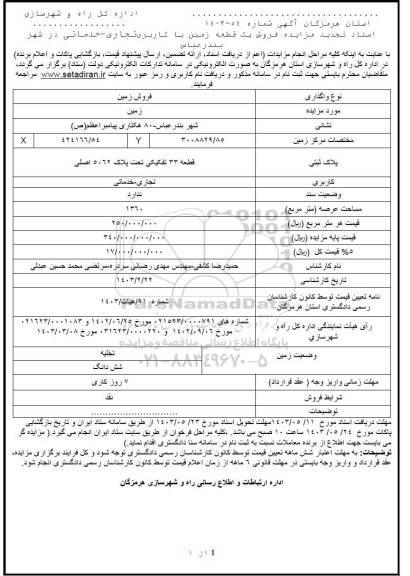 اداره کل راه و شهرسازی
استان هرمزگان آگهی شماره ۵۴-۱۴۰۳
اسناد تجدید مزایده فروش یک قطعه زمین با کاربری تجاری-خدماتی در شهر
بندرعباس
با عنایت به اینکه کلیه مراحل انجام مزایدات (اعم از دریافت اسناد، ارائه تضمین، ارسال پیشنهاد قیمت، بازگشایی پاکات و اعلام برنده)
در اداره کل راه و شهرسازی استان هرمزگان به صورت الکترونیکی در سامانه تدارکات الکترونیکی دولت (ستاد) برگزار می گردد،
متقاضیان محترم بایستی جهت ثبت نام در سامانه مذکور و دریافت نام کاربری و رمز عبور به سایت www.setadiran.ir مراجعه
فرمایند.
نوع واگذاری فروش زمین
مورد مزایده زمین
نشانی شهر بندرعباس-۸۰ هکتاری پیامبراعظم(ص)
مختصات مرکز زمین ۳۰۰۸۸۲۹/۸۵ Y ۴۲۴۱۶۶/۵۴ X
پلاک ثبتی قطعه ۳۳ تفکیکی تحت پلاک ۵۰۶۲ اصلی
کاربری تجاری-خدماتی
وضعیت سند ندارد
مساحت عرصه (متر مربع) ۱۳۶۰
قیمت هر متر مربع (ریال) ۲۵۰/۰۰۰/۰۰۰
قیمت پایه مزایده (ریال) ۳۴۰/۰۰۰/۰۰۰/۰۰۰
۵% قیمت کل (ریال) ۱۷/۰۰۰/۰۰۰/۰۰۰
نام کارشناس حمیدرضا کاشفی-مهندس مهدی رضائی سردره-مرتضی محمد حسین عبدلی
تاریخ کارشناسی ۱۴۰۳/۲/۲۲
نامه تعیین قیمت توسط کانون کارشناسان رسمی دادگستری استان هرمزگان شماره ۹۱/هیات/۱۴۰۳
رأی هیأت نمایندگی اداره کل راه و شهرسازی شماره های ۰۲۱۵۹۳/۰۰۰۰۷۹۱ مورخ ۱۴۰۲/۰۶/۲۵ و ۰۲۱۶۲۳/۰۰۰۱۰۸۳
مورخ ۱۴۰۲/۰۹/۰۶ و ۰۳۱۶۲۳/۰۰۰۰۲۲۰ مورخ ۱۴۰۳/۰۳/۰۸
وضعیت زمین تخلیه
شش دانگ
مهلت زمانی واریز وجه ( عقد قرارداد) ۷ روز کاری
شرایط فروش نقد
توضیحات ..............................
مهلت دریافت اسناد مورخ ۱۱/ ۰۵/ ۱۴۰۳مهلت تحویل اسناد مورخ ۲۳/ ۰۵/ ۱۴۰۳ از طریق سامانه ستاد ایران و تاریخ بازگشایی
پاکات مورخ ۲۴/ ۰۵/ ۱۴۰۳ ساعت ۱۰ صبح می باشد. کلیه مراحل فرخوان از طریق سایت ستاد ایران انجام می گیرد.( مزایده گر
می بایست جهت اطلاع از برنده معاملات نسبت به ثبت نام در سامانه ستا دادگستری اقدام نماید.)
توضیحات: به مهلت اعتبار شش ماهه تعیین قیمت توسط کانون کارشناسان رسمی دادگستری توجه شود و کل فرایند برگزاری مزایده،
عقد قرارداد و واریز وجه بایستی در مهلت قانونی ۶ ماهه از زمان اعلام قیمت توسط کانون کارشناسان رسمی دادگستری انجام شود.
اداره ارتباطات و اطلاع رسانی راه و شهرسازی هرمزگان
1 از ۱
ParsNamadData
پایگاه اطلاع رسانی مناقصه و مزایده
۰۲۱-۸۸۳۴۹۶۷۰-۵